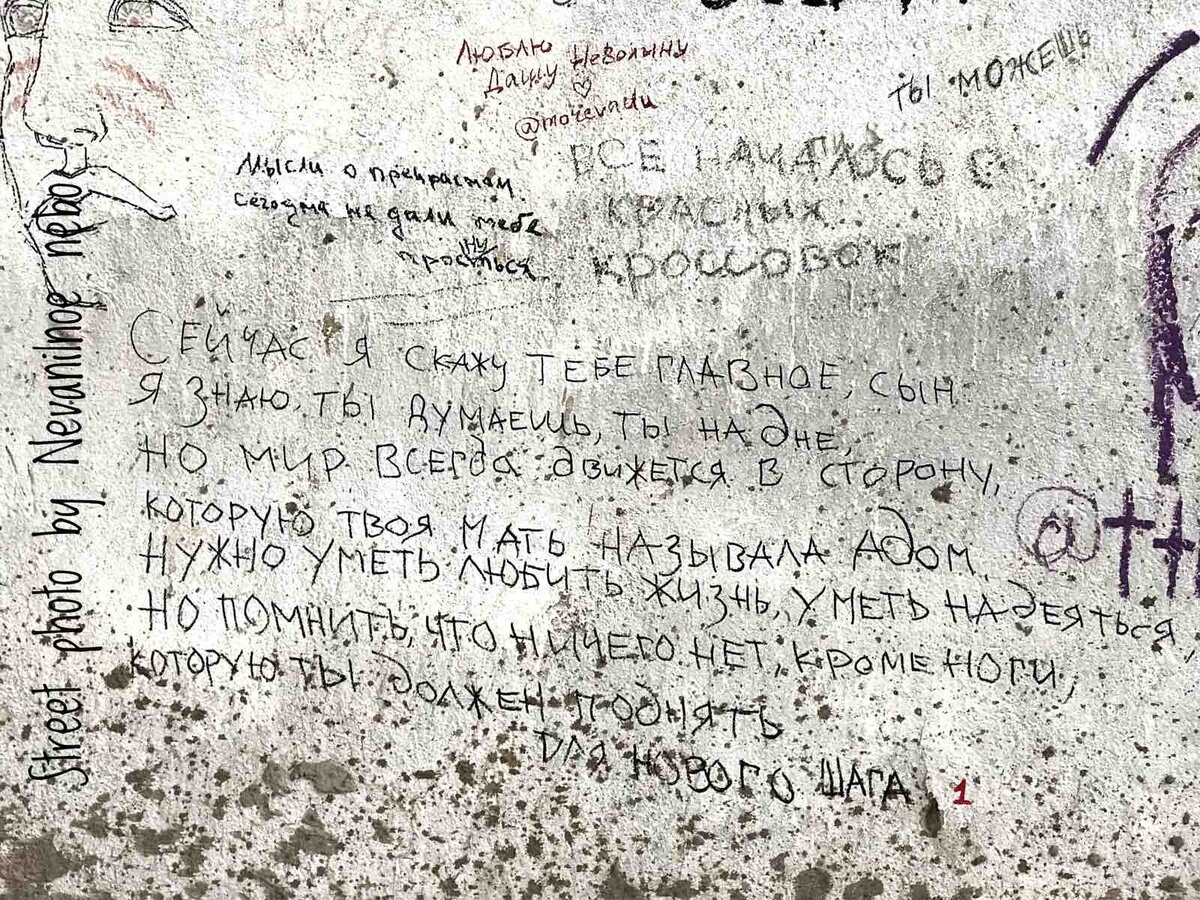 Люблю
Дашу Неволину
ТЫ МОЖЕШЬ
ВСЕ НАЧАЛОСЬ С
КРАСНЫХ
КРОССОВОК
Мысли о прекрасном
сегодня не дали тебе
ну
проснуться
СЕЙЧАС Я СКАЖУ ТЕБЕ ГЛАВНОЕ, СЫН
Я ЗНАЮ, ТЫ ДУМАЕШЬ, ТЫ НА ДНЕ,
НО МИР ВСЕГДА ДВИЖЕТСЯ В СТОРОНУ,
КОТОРУЮ ТВОЯ МАТЬ НАЗЫВАЛА АДОМ.
НУЖНО УМЕТЬ ЛЮБИТЬ ЖИЗНЬ, УМЕТЬ НАДЕЯТЬСЯ,
НО ПОМНИТЬ, ЧТО НИЧЕГО НЕТ, КРОМЕ НОГИ,
КОТОРУЮ ТЫ ДОЛЖЕН ПОДНЯТЬ
ДЛЯ НОВОГО ШАГА
1
Street photo by Nevanilnoe nebo